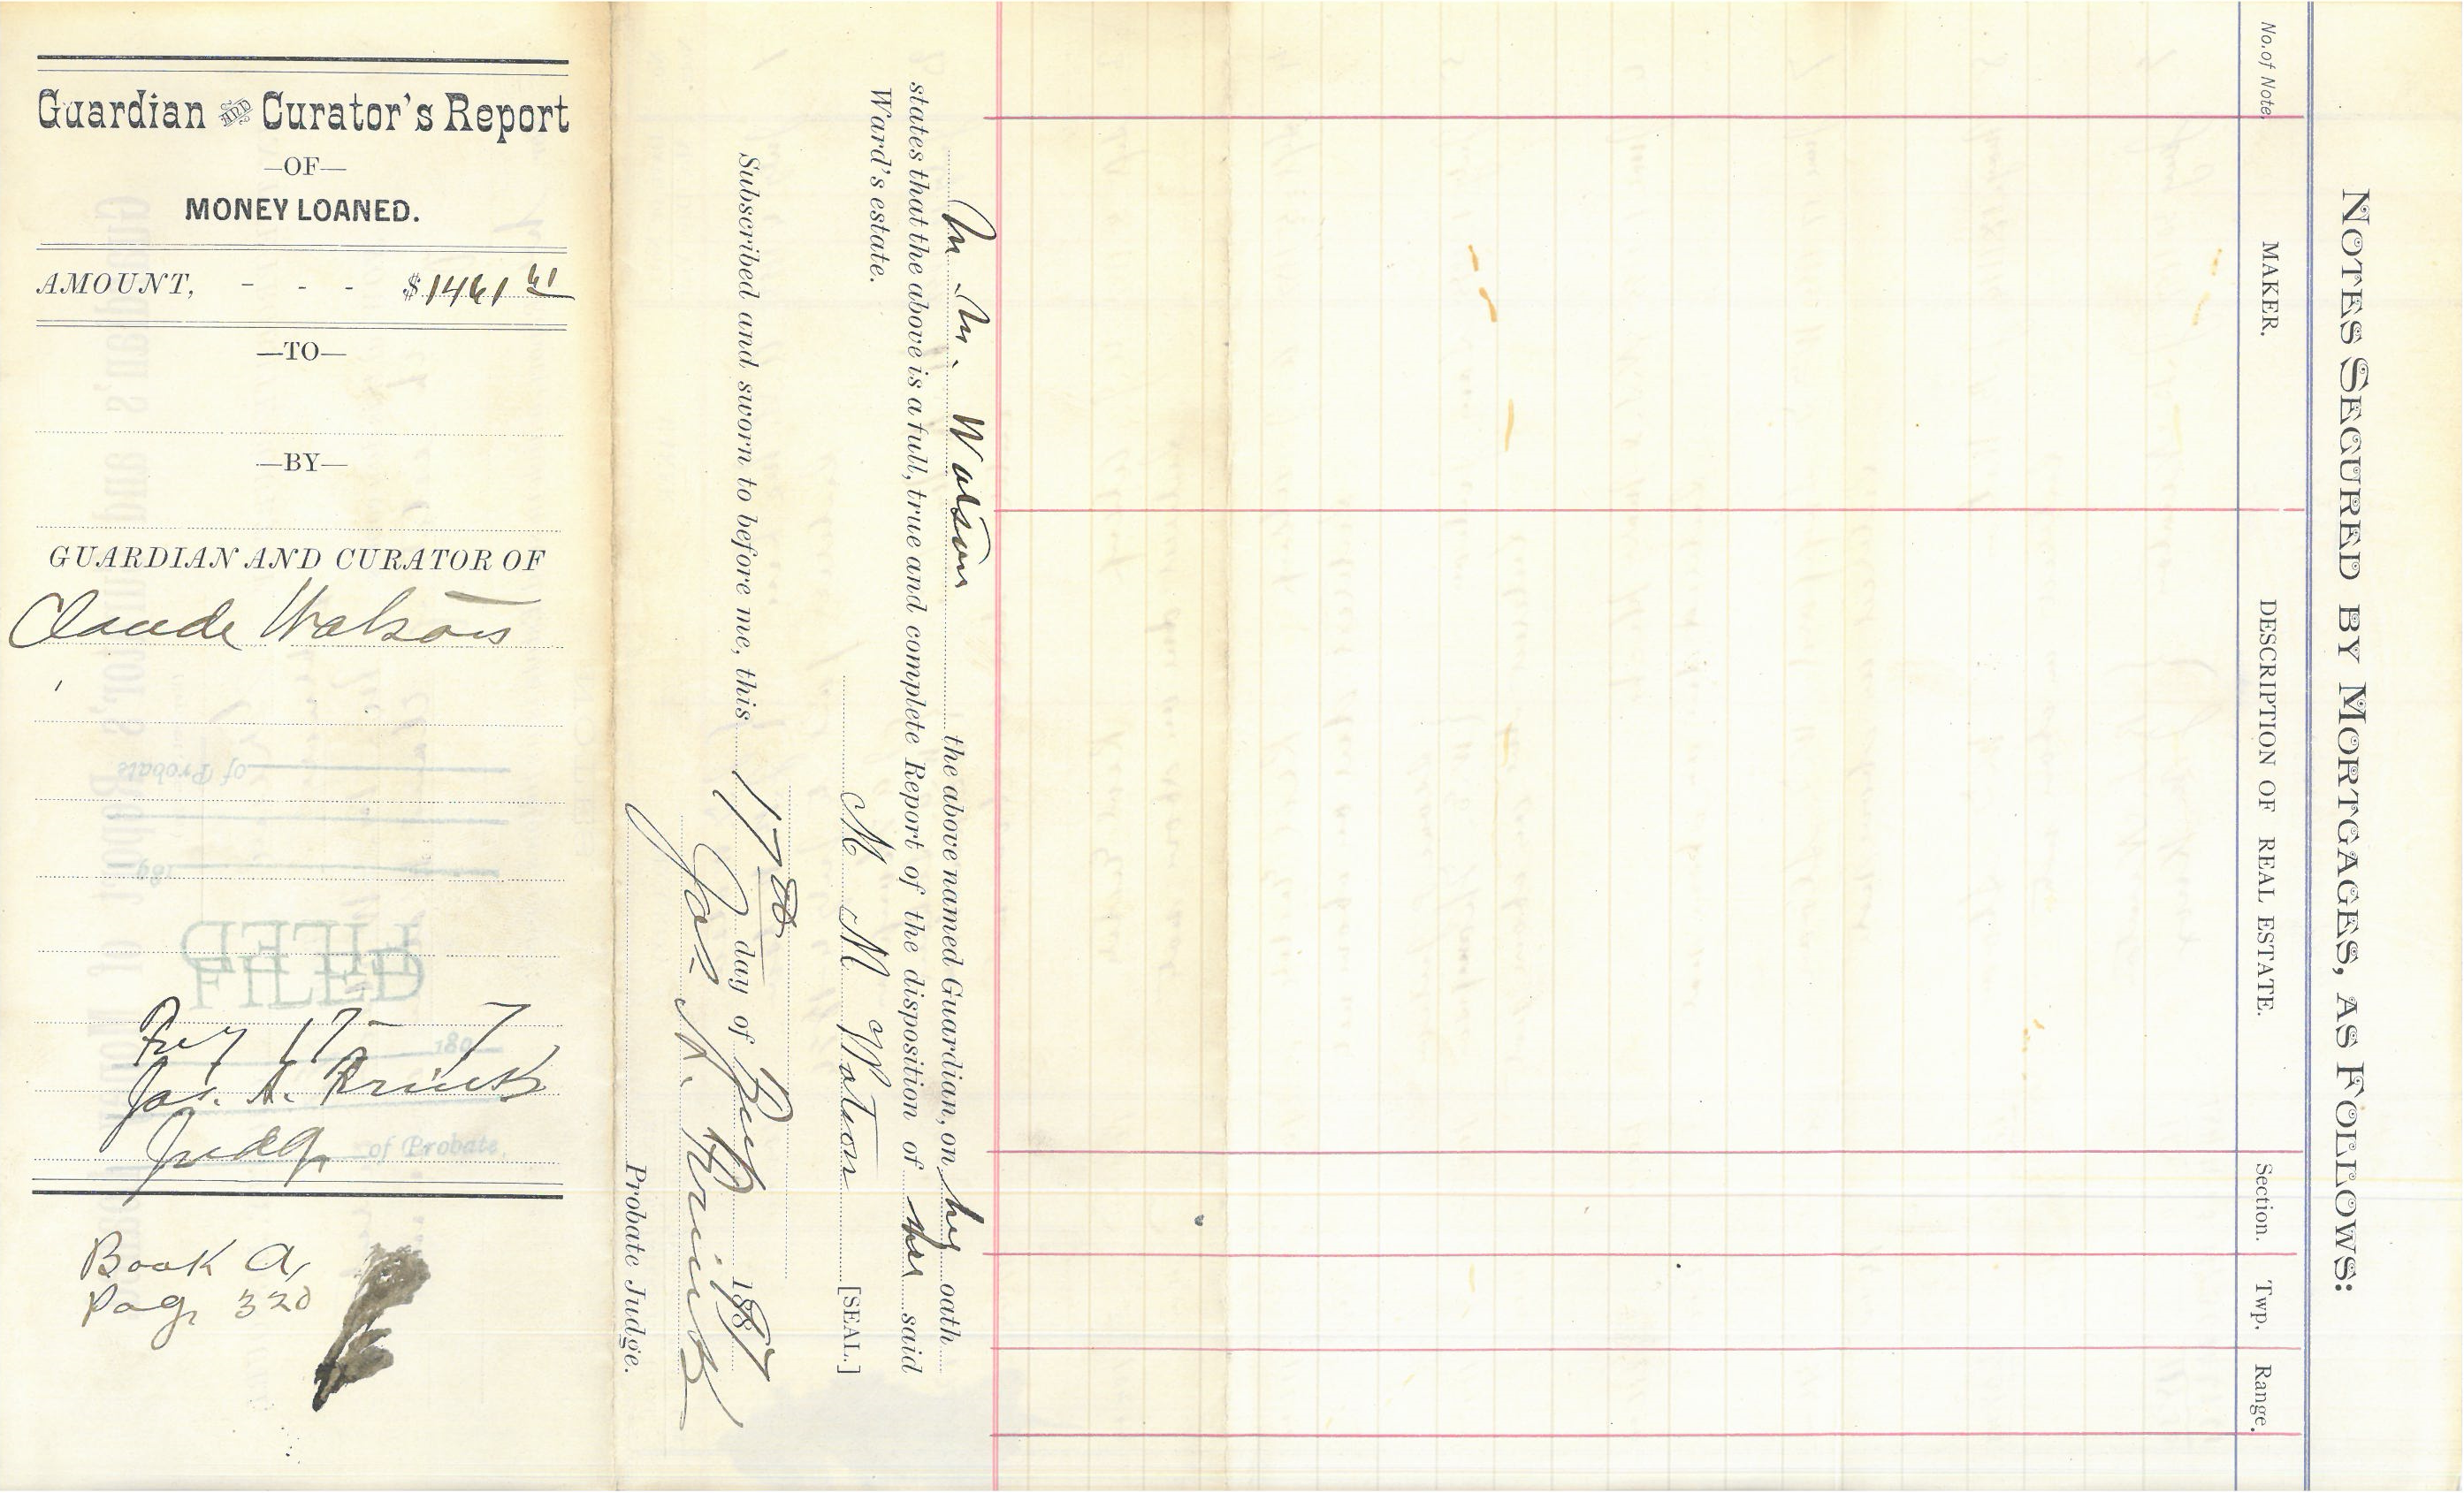 Guardian AND Curator's Report
—OF—
MONEY LOANED.
AMOUNT, - - - $1461 61
—TO—
—BY—
GUARDIAN AND CURATOR OF
Claude Watson
of Probate
189
FILED
FILED
17 - 7
189
Jas. A. Krinks
Judge of Probate.
Book A,
Page 320
NOTES SECURED BY MORTGAGES, AS FOLLOWS:
No. of Note. MAKER. DESCRIPTION OF REAL ESTATE. Section. Twp. Range.
M. M. Watson the above named Guardian, on his oath
states that the above is a full, true and complete Report of the disposition of said
Ward's estate.
M M Watson [SEAL.]
Subscribed and sworn to before me, this 17th day of 1897
Jas. A. Krinks
Probate Judge.